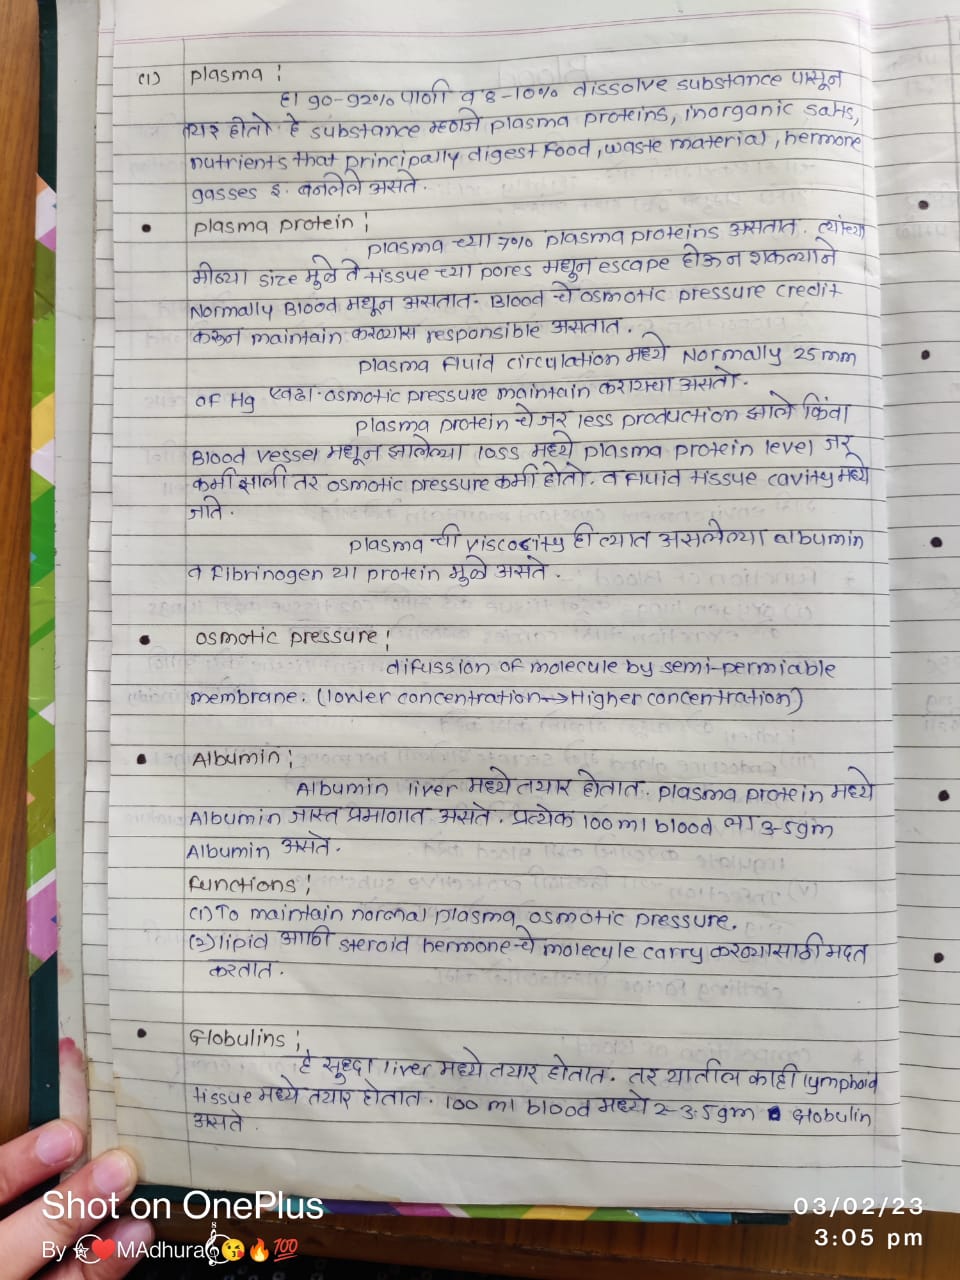 (1) plasma :
हा 90-92% पाणी व 8-10% dissolve substance पासून
तयार होतो. हे substance म्हणजे plasma proteins, inorganic salts,
nutrients that principally digest food, waste material, hermone
gasses इ. बनलेले असते.
• plasma protein :
plasma च्या 7% plasma proteins असतात. त्यांच्या
मोठ्या size मुळे ते tissue च्या pores मधून escape होऊ न शकल्याने
Normally Blood मधून असतात. Blood चे osmotic pressure credit
करून maintain करण्यास responsible असतात.
plasma fluid circulation मध्ये Normally 25 mm
of Hg एवढा osmotic pressure maintain करायचा असतो.
plasma protein चे जर less production झाले किंवा
Blood vessel मधून झालेल्या loss मध्ये plasma protein level जर
कमी झाली तर osmotic pressure कमी होतो. व fluid tissue cavity मध्ये
जाते.
plasma ची viscosity ही त्यात असलेल्या albumin
व fibrinogen या protein मुळे असते.
• osmotic pressure :
difussion of molecule by semi-permiable
membrane. (lower concentration → Higher concentration)
• Albumin :
Albumin liver मध्ये तयार होतात. plasma protein मध्ये
Albumin जास्त प्रमाणात असते. प्रत्येक 100 ml blood ला 3-5gm
Albumin असते.
functions :
(1) To maintain normal plasma osmotic pressure.
(2) lipid आणि steroid hermone चे molecule carry करण्यासाठी मदत
करतात.
• Globulins :
हे सुध्दा liver मध्ये तयार होतात. तर यातील काही lymphoid
tissue मध्ये तयार होतात. 100 ml blood मध्ये 2-3.5gm Globulin
असते.
Shot on OnePlus
By MAdhura
03/02/23
3:05 pm